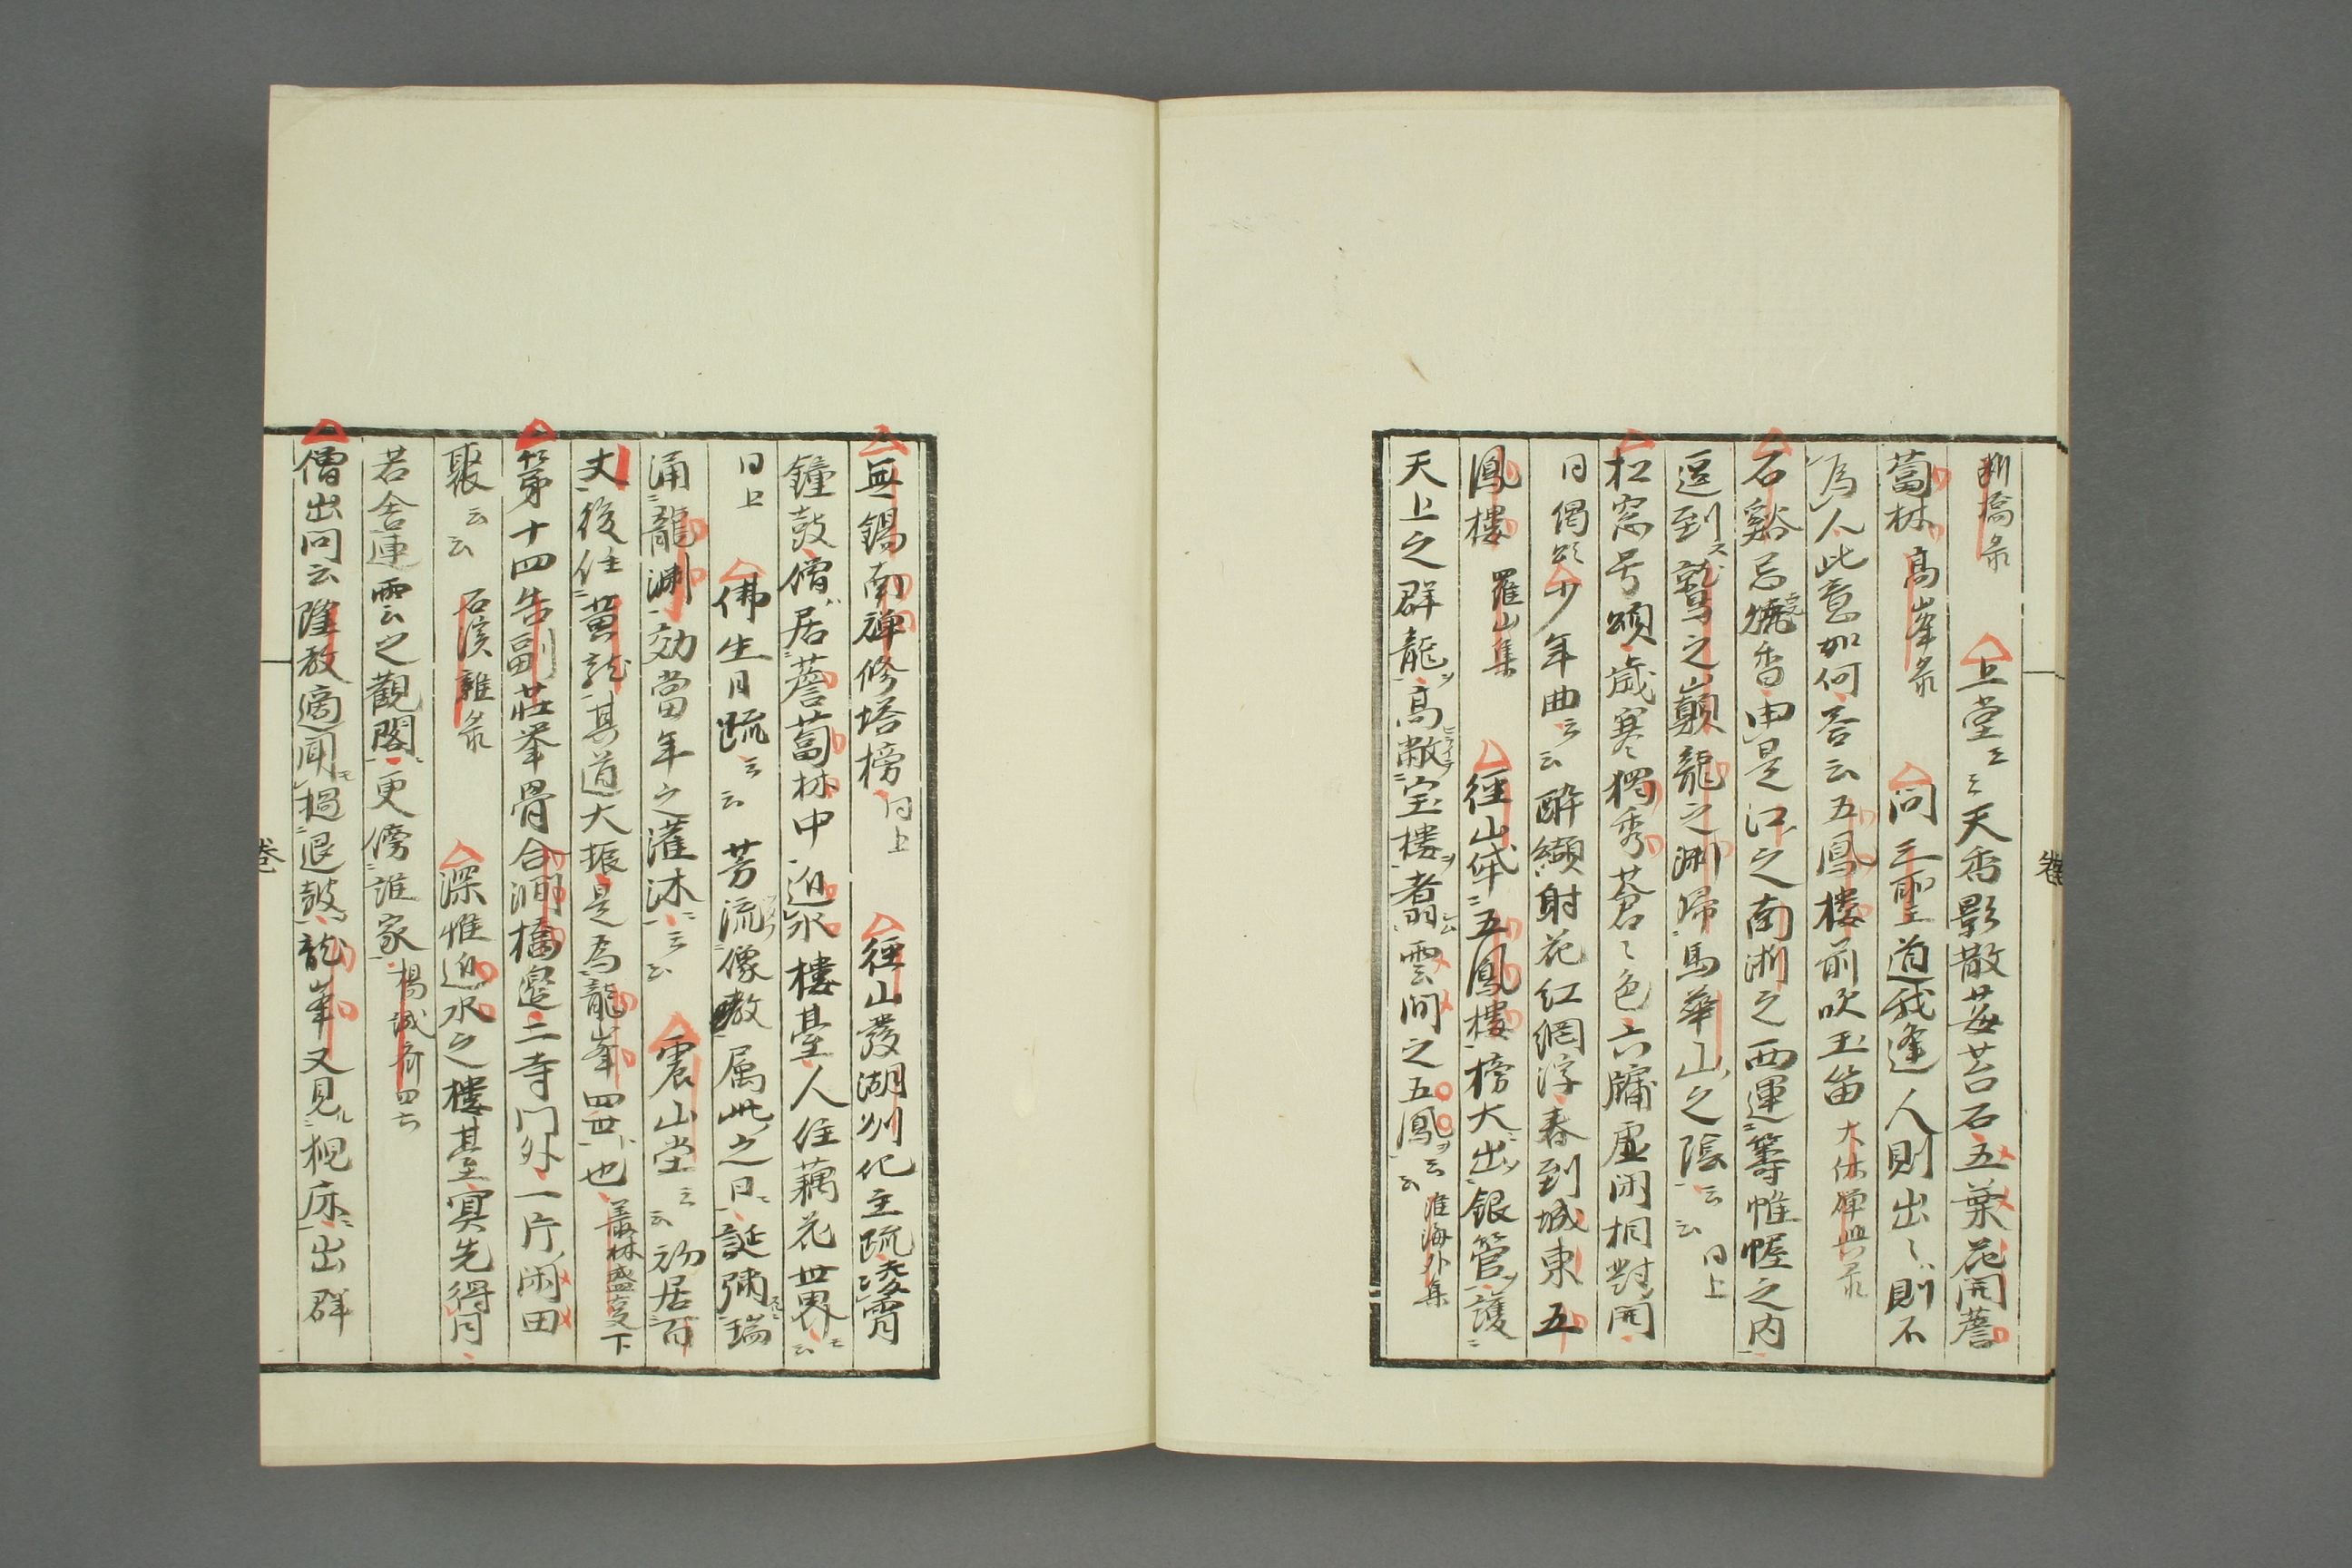 断橋录 上堂云云天香影散莓苔石五葉花開薝
蔔林 高峯录 問三聖道我逢人則出々則不
為人此意如何答云五鳳樓前吹玉笛 大休禅興录
石谿忌焼香申是江之南淅之西運籌帷幄之内
逗到鷲之巔龍之渕帰馬華山之陰云云 同上
松窓号頌歳寒獨秀蒼々色六牖虚闲相對開
同偈頌少年曲云云酔纈射花紅網浮春到城東五
鳳樓 羅山集 徑山 五鳳樓榜大出銀管護
天上之群龍高敞宝樓翥雲間之五鳳云云 淮海外集
卷
無錫南禅修塔榜 同上 徑山發湖州化主疏凌霄
鐘鼓僧居薝蔔林中迎水樓臺人住藕花世界云云
同上 佛生日疏云云芳流像教属此之日誕彌瑞
涌龍渕効當年之灌沐云云 震山堂云云初居百
丈後住黄龍其道大振是為龍峯四世也 叢林盛事下
第十四告副荘挙骨合澗橋邉二寺門外一片闲田
聚云云 石溪雜录 深惟迎水之樓臺寞先得月
若舎連雲之觀閣更傍誰家 楊誠斎四六
僧出問云隆教適聞撾退鼓龍峯又見 床出群
卷